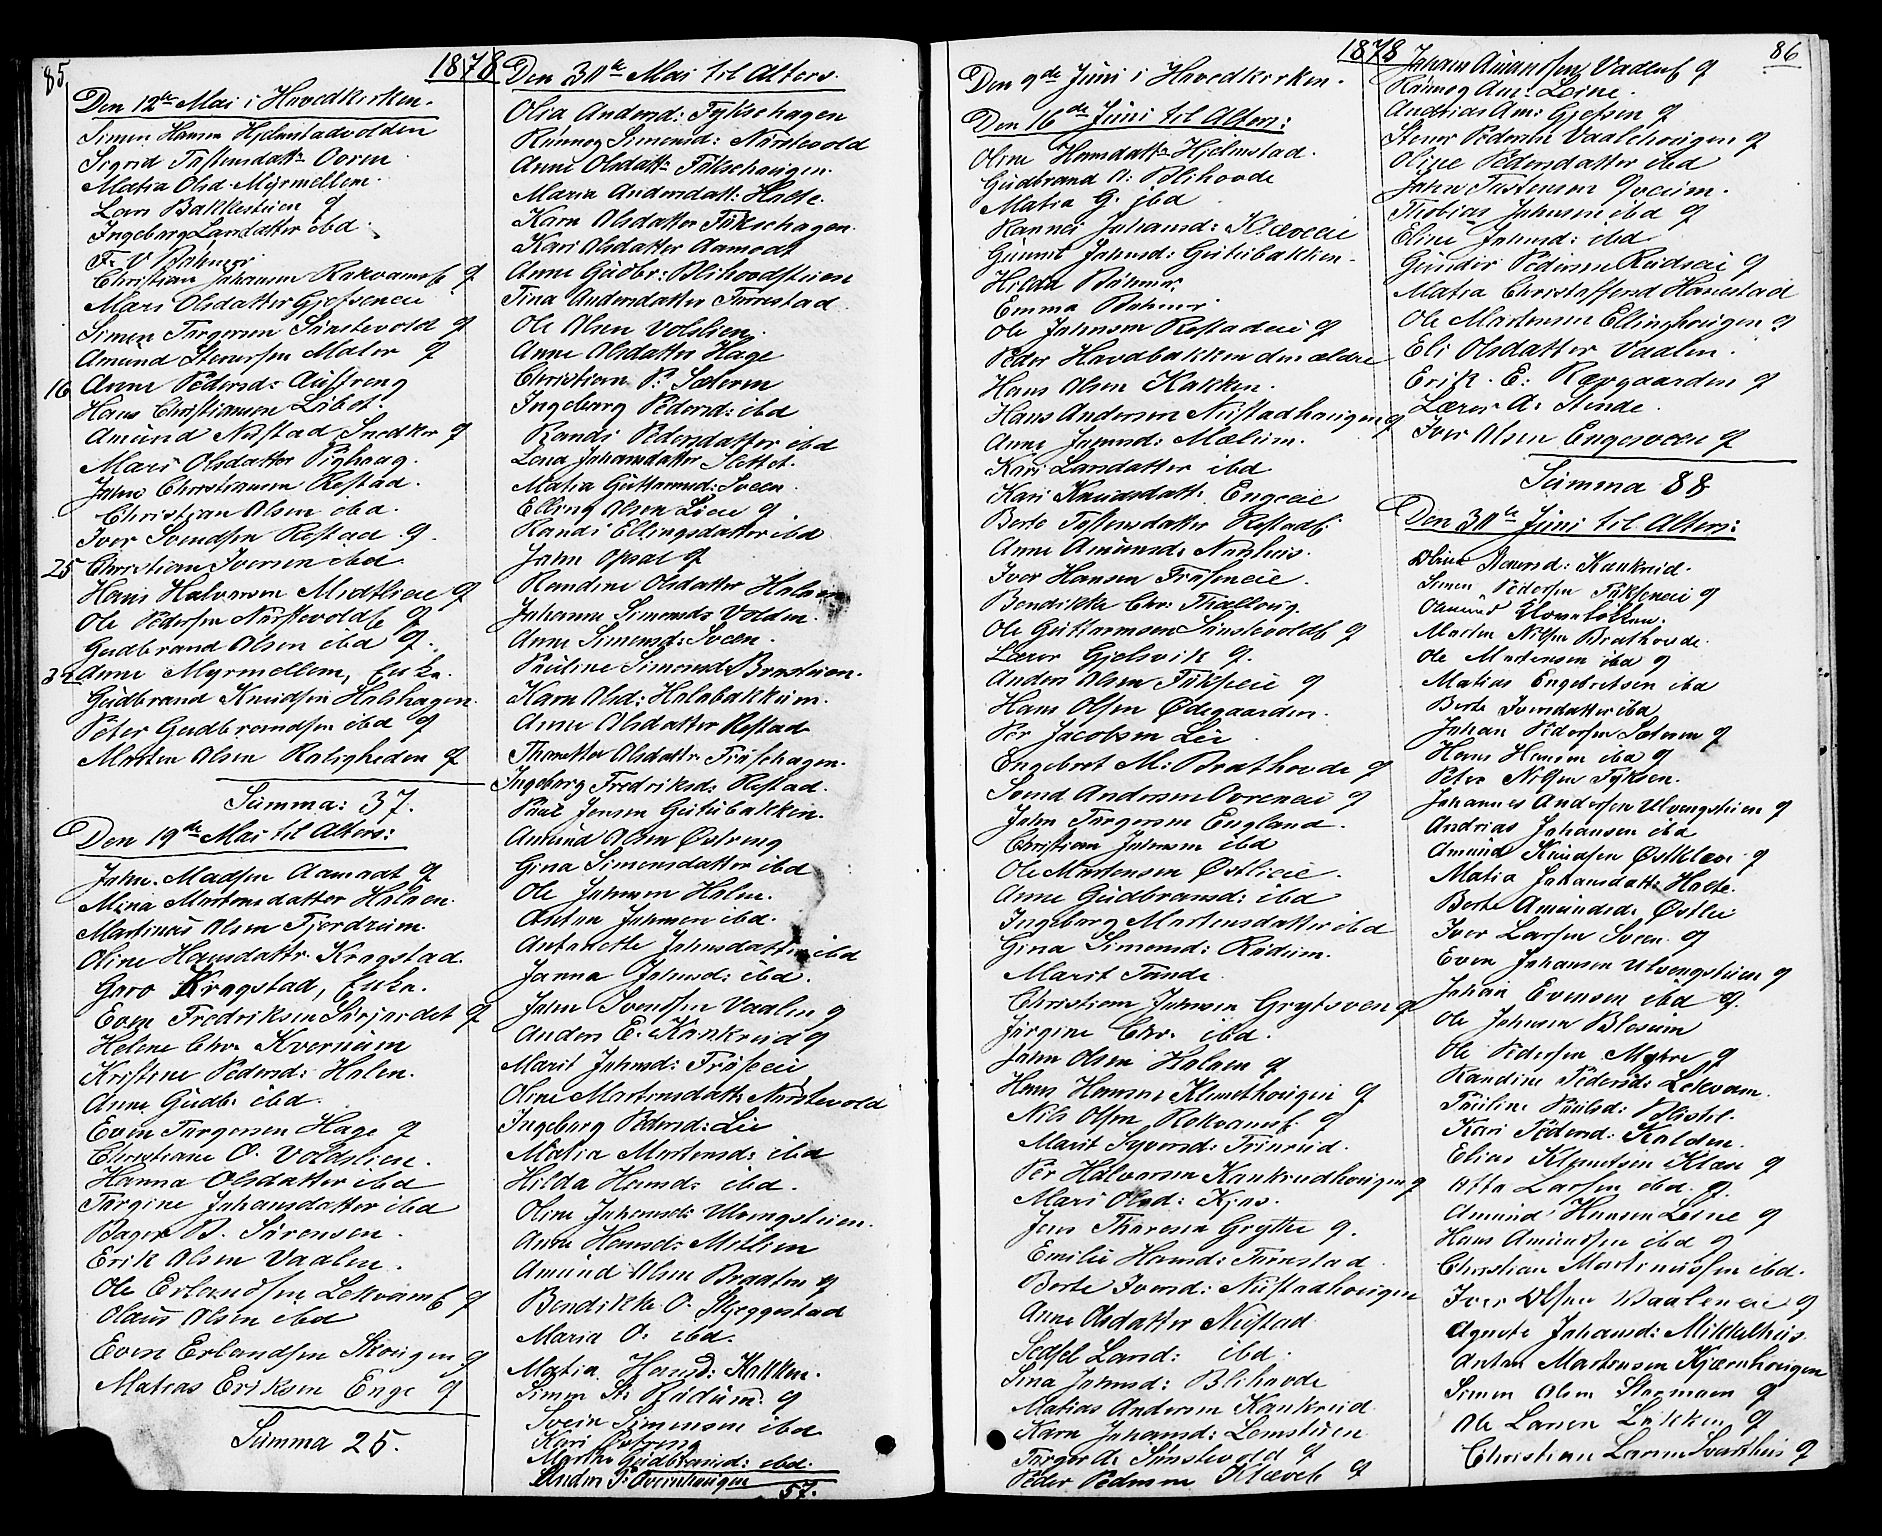 85
1878
Den 12te Mai i Hovedkirken.
Simen Hansen Hjelmstadvolden
Sigrid Tostensdatt: Ovren
Matia Olsd. Myrmellem
Lars Bakkestuen og
Ingeborg Larsdatter ibd
F. V. Bøhmer
Christian Johansen Rakvamsf og
Mari Olsdatter Gjefseneie
Simen Torgersen Sønstevold og
Amund Stenersen Mælør og
16 Anne Pedersd: Austreng
Hans Christiansen Libet:
Amund Nustad Snedker og
Mari Olsdatter Pighaug
John Christiansen Røstad.
Christian Olsen ibd.
Iver Svendsen Røstad og.
25 Christian Iversen ibd
Hans Halvorsen Midtlieeie og
Ole Pedersen Nørstevoldf og
Gudbrand Olsen ibd og
32 Anne Myrmellem, Enke.
Gudbrand Knudsen Holshagen
Peter Gudbrandsen ibd og
Morten Olsen Roligheden og
Summa: 37.
Den 19de Mai til Alters:
John Madsen Aamodt og
Mina Mortensdatter Halsen.
Martinus Olsen Fjerdrum.
Oline Hansdattr. Kragstad.
Goro Kragstad, Enke.
Even Fredriksen Sørjordet og
Helene Chr. Kvernum
Kristine Pedersd: Holen.
Anne Gudb. ibd.
Even Torgersen Hage og
Christiane O. Voldslien.
Hanna Olsdatter ibd
Torgine Johansdatter ibd
Bager B. Sørensen.
Erik Olsen Vaalen.
Ole Erlandsen Lekvamsf og
Olaus Olsen ibd
Even Erlandsen Skougen og
Matias Eriksen Enge og
Summa 25.
Den 30te Mai til Alters.
Olia Andersd: Tyksehagen
Rønnog Simensd: Nørstevold
Anne Olsdatt: Tyksehaugen
Maria Andersdatt: Holte.
Karn Olsdatter Tyksehagen.
Kari Olsdatter Aamodt
Anne Gudbr: Blihovdstuen
Tina Andersdatter Torrestad
Ole Olsen Volslien
Anne Olsdatter Hage
Christian P. Sæteren
Ingeborg Pedersd: ibd
Randi Pedersdatter ibd
Lena Johansdatter Slettet.
Matia Guttormsd: Sveen
Elling Olsen Lieeie og
Randi Ellingsdatter ibd
John Opsal og
Randine Olsdatter Halsen
Johanne Simensd: Volden.
Anne Simensd: Sveen.
Pauline Simensd Bræstuen.
Karn Olsd: Holsbakken.
Anne Olsdatter Røstad
Thorette Olsdatt: Frøsehagen.
Ingeborg Fredriksd: Røstad.
Paul Jensen Geitebakken.
Amund Olsen Østreng
Gina Simensdatter ibd
Ole Johnsen Holen.
Anton Johnsen ibd.
Antonette Johnsdatter ibd
Janna Johnsd: ibd.
John Svendsen Vaalen og
Anders E. Kankrud og
Marit Johnsd: Frøseeie
Oline Mortensdatt: Nørstevold
Ingeborg Pedersd: Lie
Matia Mortensd: ibd
Hilda Hansd: ibd.
Oline Johansd: Ulvengstuen.
Anne Hansd: Mitlien
Amund Olsen Braaten og
Bendikke O. Skjeggestad
Maria O. ibd.
Matia Hansd: Kakken.
Simen Th. Rudum. og
Svein Simensen ibd
Kari Østreng
Marthe Gudbrand: ibd.
Anders P. Overnhaugen
57.
1878
86
Den 9de Juni i Hovedkirken.
Den 16de Juni til Alters:
Oline Hansdatt: Hjelmstad.
Gudbrand A: Blihovde
Matia G. ibd
Rønnei Johansd: Kleveeie
Gunnil Johnsd: Geitebakken
Hilda Bøhmer.
Emma Bøhmer
Ole Johnsen Røstadeie og
Peder Hovdbakken den ældre
Hans Olsen Kakken.
Hans Andersen Nustadhaugen og
Anne Johnsd: Mælum.
Kari Larsdatter ibd
Kari Knudsdatt: Engeeie
Berte Tostensdatter Røstadf
Anne Amundsd: Nørhus.
Iver Hansen Frøseneie.
Bendikke Chr: Tradloug.
Ole Guttormsen Sønstevoldf og
Lærer Gjelsvik og.
Anders Olsen Fykseeie og
Hans Olsen Ødegaarden.
Per Jacobsen Lie
Engebret M: Brathovde og
Svend Andersen Ovreneie og
John Torgersen England.
Christian Johnsen ibd
Ole Mortensen Østlieeie.
Anne Gudbransd: ibd
Ingeborg Mortensdatter ibd
Gina Simensd: Rudum.
Marit Tande.
Christian Johnsen Grytsveen og
Jørgine Chr. ibd.
John Olsen Halsen og
Hans Hansen Klemethougen og
Nils Olsen Rokvamsf og
Marit Syversd: Finrud.
Per Halvorsen Kankrudhougen og
Mari Olsd: Kjos.
Jens Thoresen Grytte og.
Emilie Hansd: Tørrstad
Berte Iversd: Nustadhougen
Anne Olsdatter Nustad
Sedsel Larsd: ibd.
Sina Johnsd: Blihovde
Matias Andersen Kankrud
Karn Johansd: Lomstuen
Torger A. Sønstevold og
Peder Pedersen Kleveb og
Johan Amundsen Vaalenf og
Rønnog Am: Loine.
Andreas Am: Gjefsen og
Stener Pedersen Vaalehougen og
Oline Pedersdatter ibd
John Tostensen Qveium.
Thobias Johnsen ibd og
Eline Johnsd: ibd
Gunder Pedersen Rudseie og
Matia Christoffersd Hanestad
Ole Mortensen Ellinghougen og
Eli Olsdatter Vaalen.
Erik. E: Rørgaarden og
Lærer A. Stende.
Iver Olsen Engesveen og
Summa 88
Den 30te Juni til Alters:
Oline Stenersd: Kankrud.
Simen Pedersen Fykseneie og
Amund Hovesløkken.
Morten Nilsen Brathovde
Ole Mortensen ibd og
Matias Engebretsen ibd
Berte Iversdatter ibd
Johan Pedersen Sæteren og
Hans Hansen ibd og
Peter Nilsen Fyksen.
Johannes Andersen Ulvengstuen og
Andrias Johansen ibd
Amund Knudsen Østkleve og
Matia Johansdatt: Holte.
Berte Amundsd: Østlie
Iver Larsen Sveen. og
Even Johansen Ulvengstuen og
Johan Evensen ibd og.
Ole Johnsen Blesum
Ole Pedersen Mytre og
Randine Pedersd: Lekvam
Pauline Paulsd: Blistel.
Kari Pedersd: Kalden.
Elias Klemetsen Klæve og
Otto Larsen ibd. og.
Amund Hansen Leine og
Hans Amundsen ibd og
Christian Martinussen ibd.
Iver Olsen Vaaleneie og
Agnete Johansd: Mikkelhus
Anton Martensen Kjærnhougen
Simen Olsen Stormoen og
Ole Larsen Løkken og
Christian Larsen Svarthus og